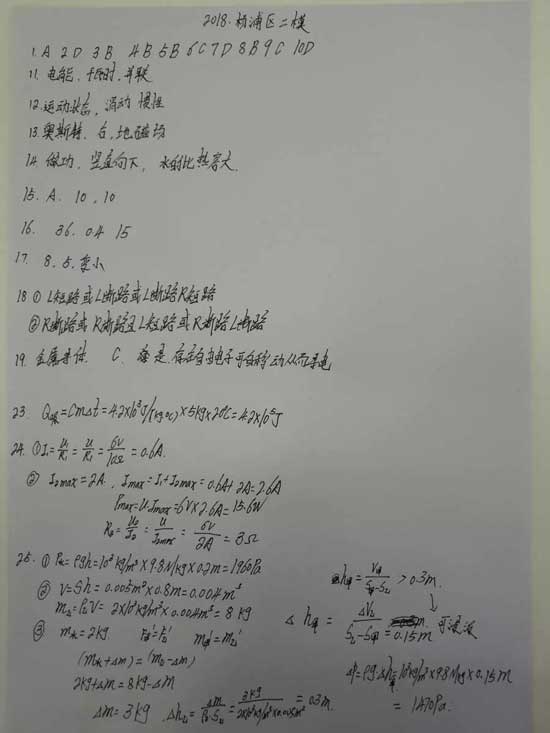 2018.杨浦区二模
1.A 2D 3B 4B 5B 6C 7D 8B 9C 10D
11.电能、千瓦时,并联
12.运动状态,滚动 惯性
13.奥斯特、右,地磁场
14.做功,竖直向下,水的比热容大.
15.A. 10,10
16. 36. 0.4 15
17. 8.5.变小
18 ① L短路或L断路或L断路R短路
② R断路或R断路且L短路或R断路L断路
19. 金属导体. C. 存在自由电子可自移动从而导电
23. Q吸=Cm△t=4.2×10³J/(kg℃)×5kg×20℃=4.2×10⁵J
24. ①I₁=U₁/R₁=U/R₁=6V/10Ω=0.6A.
② I₂max=2A, Imax=I₁+I₂max=0.6A+2A=2.6A
Pmax=U·Imax=6V×2.6A=15.6W
R₂=U₂/I₂=U/I₂max=6V/2A=3Ω
25. ① P水=ρgh=10³kg/m³×9.8N/kg×0.2m=1960Pa
② V=Sh=0.005m²×0.8m=0.004m³
m乙=ρ乙V=2×10³kg/m³×0.004m³=8kg
③ m水=2kg
(m水+△m)=(m乙-△m)
2kg+△m=8kg-△m
△m=3kg △h乙=△m/ρ乙·S乙=3kg/2×10³kg/m³×0.005m²=0.3m.
>0.3m.
△h甲=△V乙/S乙-S甲=0.15m
△p=ρg△h甲=10³kg/m³×9.8N/kg×0.15m
=1470Pa.